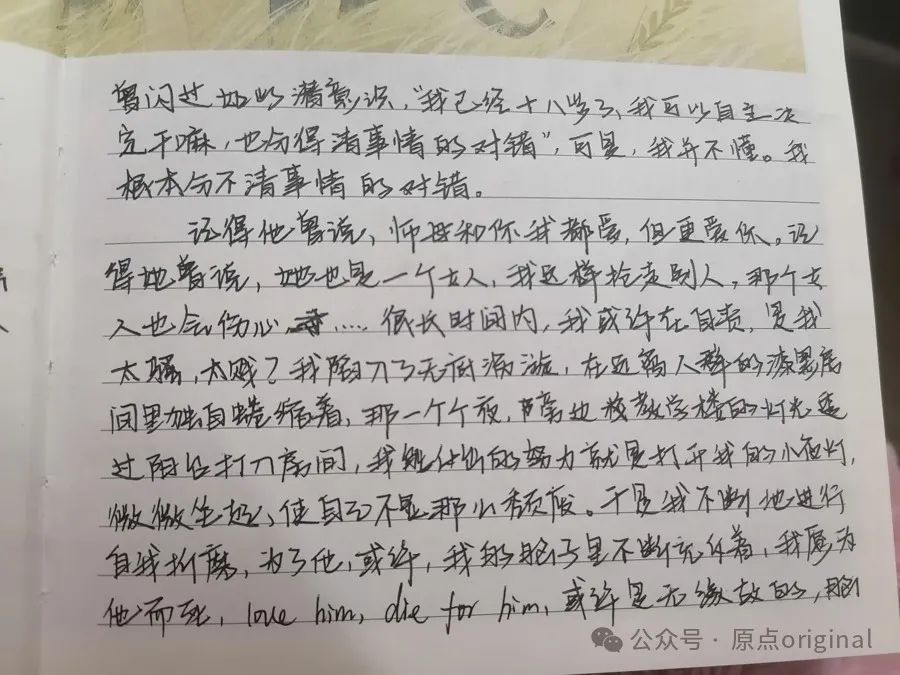 曾闪过如此潜意识，“我已经十八岁了，我可以自主决
定干嘛，也分得清事情的对错”，可是，我并不懂。我
根本分不清事情的对错。
记得他曾说，师母和你我都爱，但更爱你。记
得她曾说，她也是一个女人，我这样抢走别人，那个女
人也会伤心……很长时间内，我或许在自责，是我
太骚，太贱？我陷入了无底漩涡，在远离人群的漆黑房
间里独自蜷缩着，那一个个夜，旁边校教学楼的灯光透
过阳台打入房间，我能做的努力就是打开我的小夜灯，
微微坐起，使自己不显那么颓废。于是我不断地进行
自我折磨，为了他，或许，我的脑子里不断充斥着，我愿为
他而死，love him, die for him, 或许是无缘故的，脑
公众号·原点original